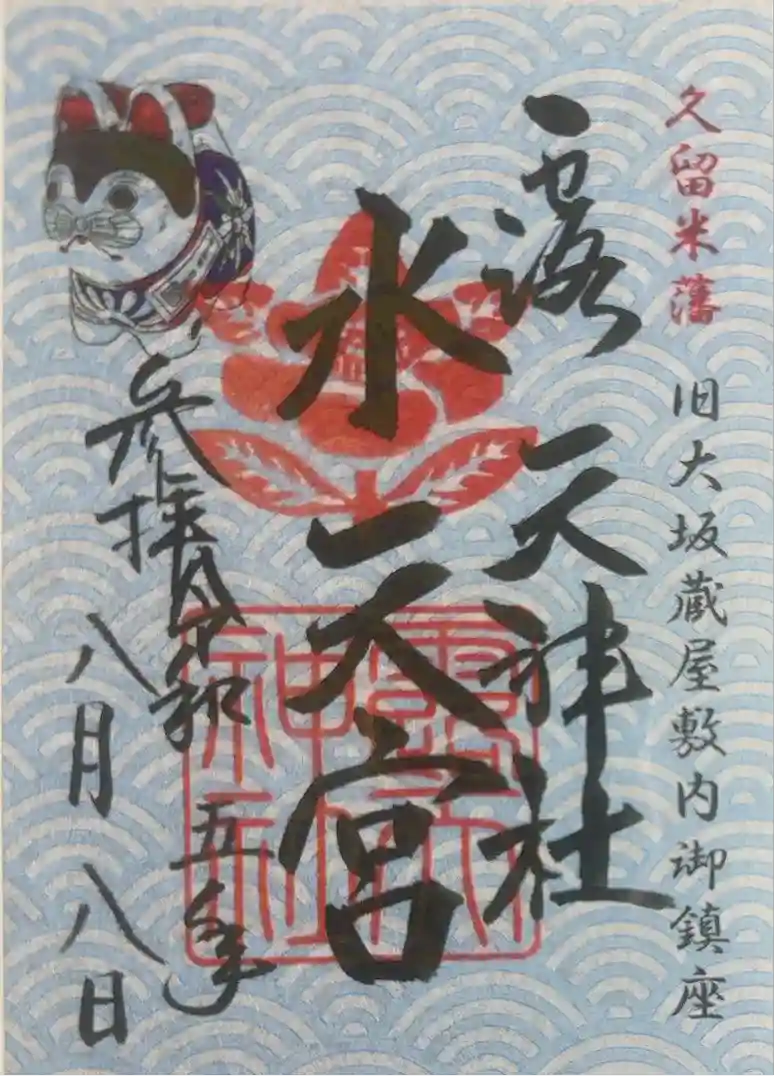 久留米藩 旧大坂蔵屋敷内御鎮座
露 天神社
水天宮
参拝 令和 五年
八月 八日
露天神社